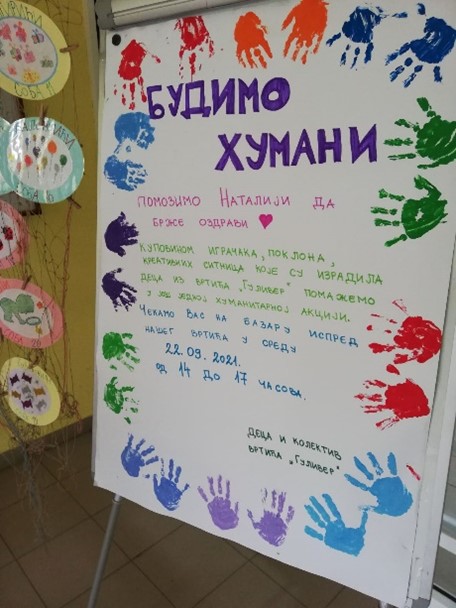 БУДИМО
ХУМАНИ
ПОМОЗИМО НАТАЛИЈИ ДА
БРЖЕ ОЗДРАВИ
КУПОВИНОМ ИГРАЧАКА, ПОКЛОНА,
КРЕАТИВНИХ СИТНИЦА КОЈЕ СУ ИЗРАДИЛА
ДЕЦА ИЗ ВРТИЋА „ГУЛИВЕР" ПОМАЖЕМО
У ЈОШ ЈЕДНОЈ ХУМАНИТАРНОЈ АКЦИЈИ.
ЧЕКАМО ВАС НА БАЗАРУ ИСПРЕД
НАШЕГ ВРТИЋА У СРЕДУ
22.09.2021.
ОД 14 ДО 17 ЧАСОВА.
ДЕЦА И КОЛЕКТИВ
ВРТИЋА „ГУЛИВЕР"